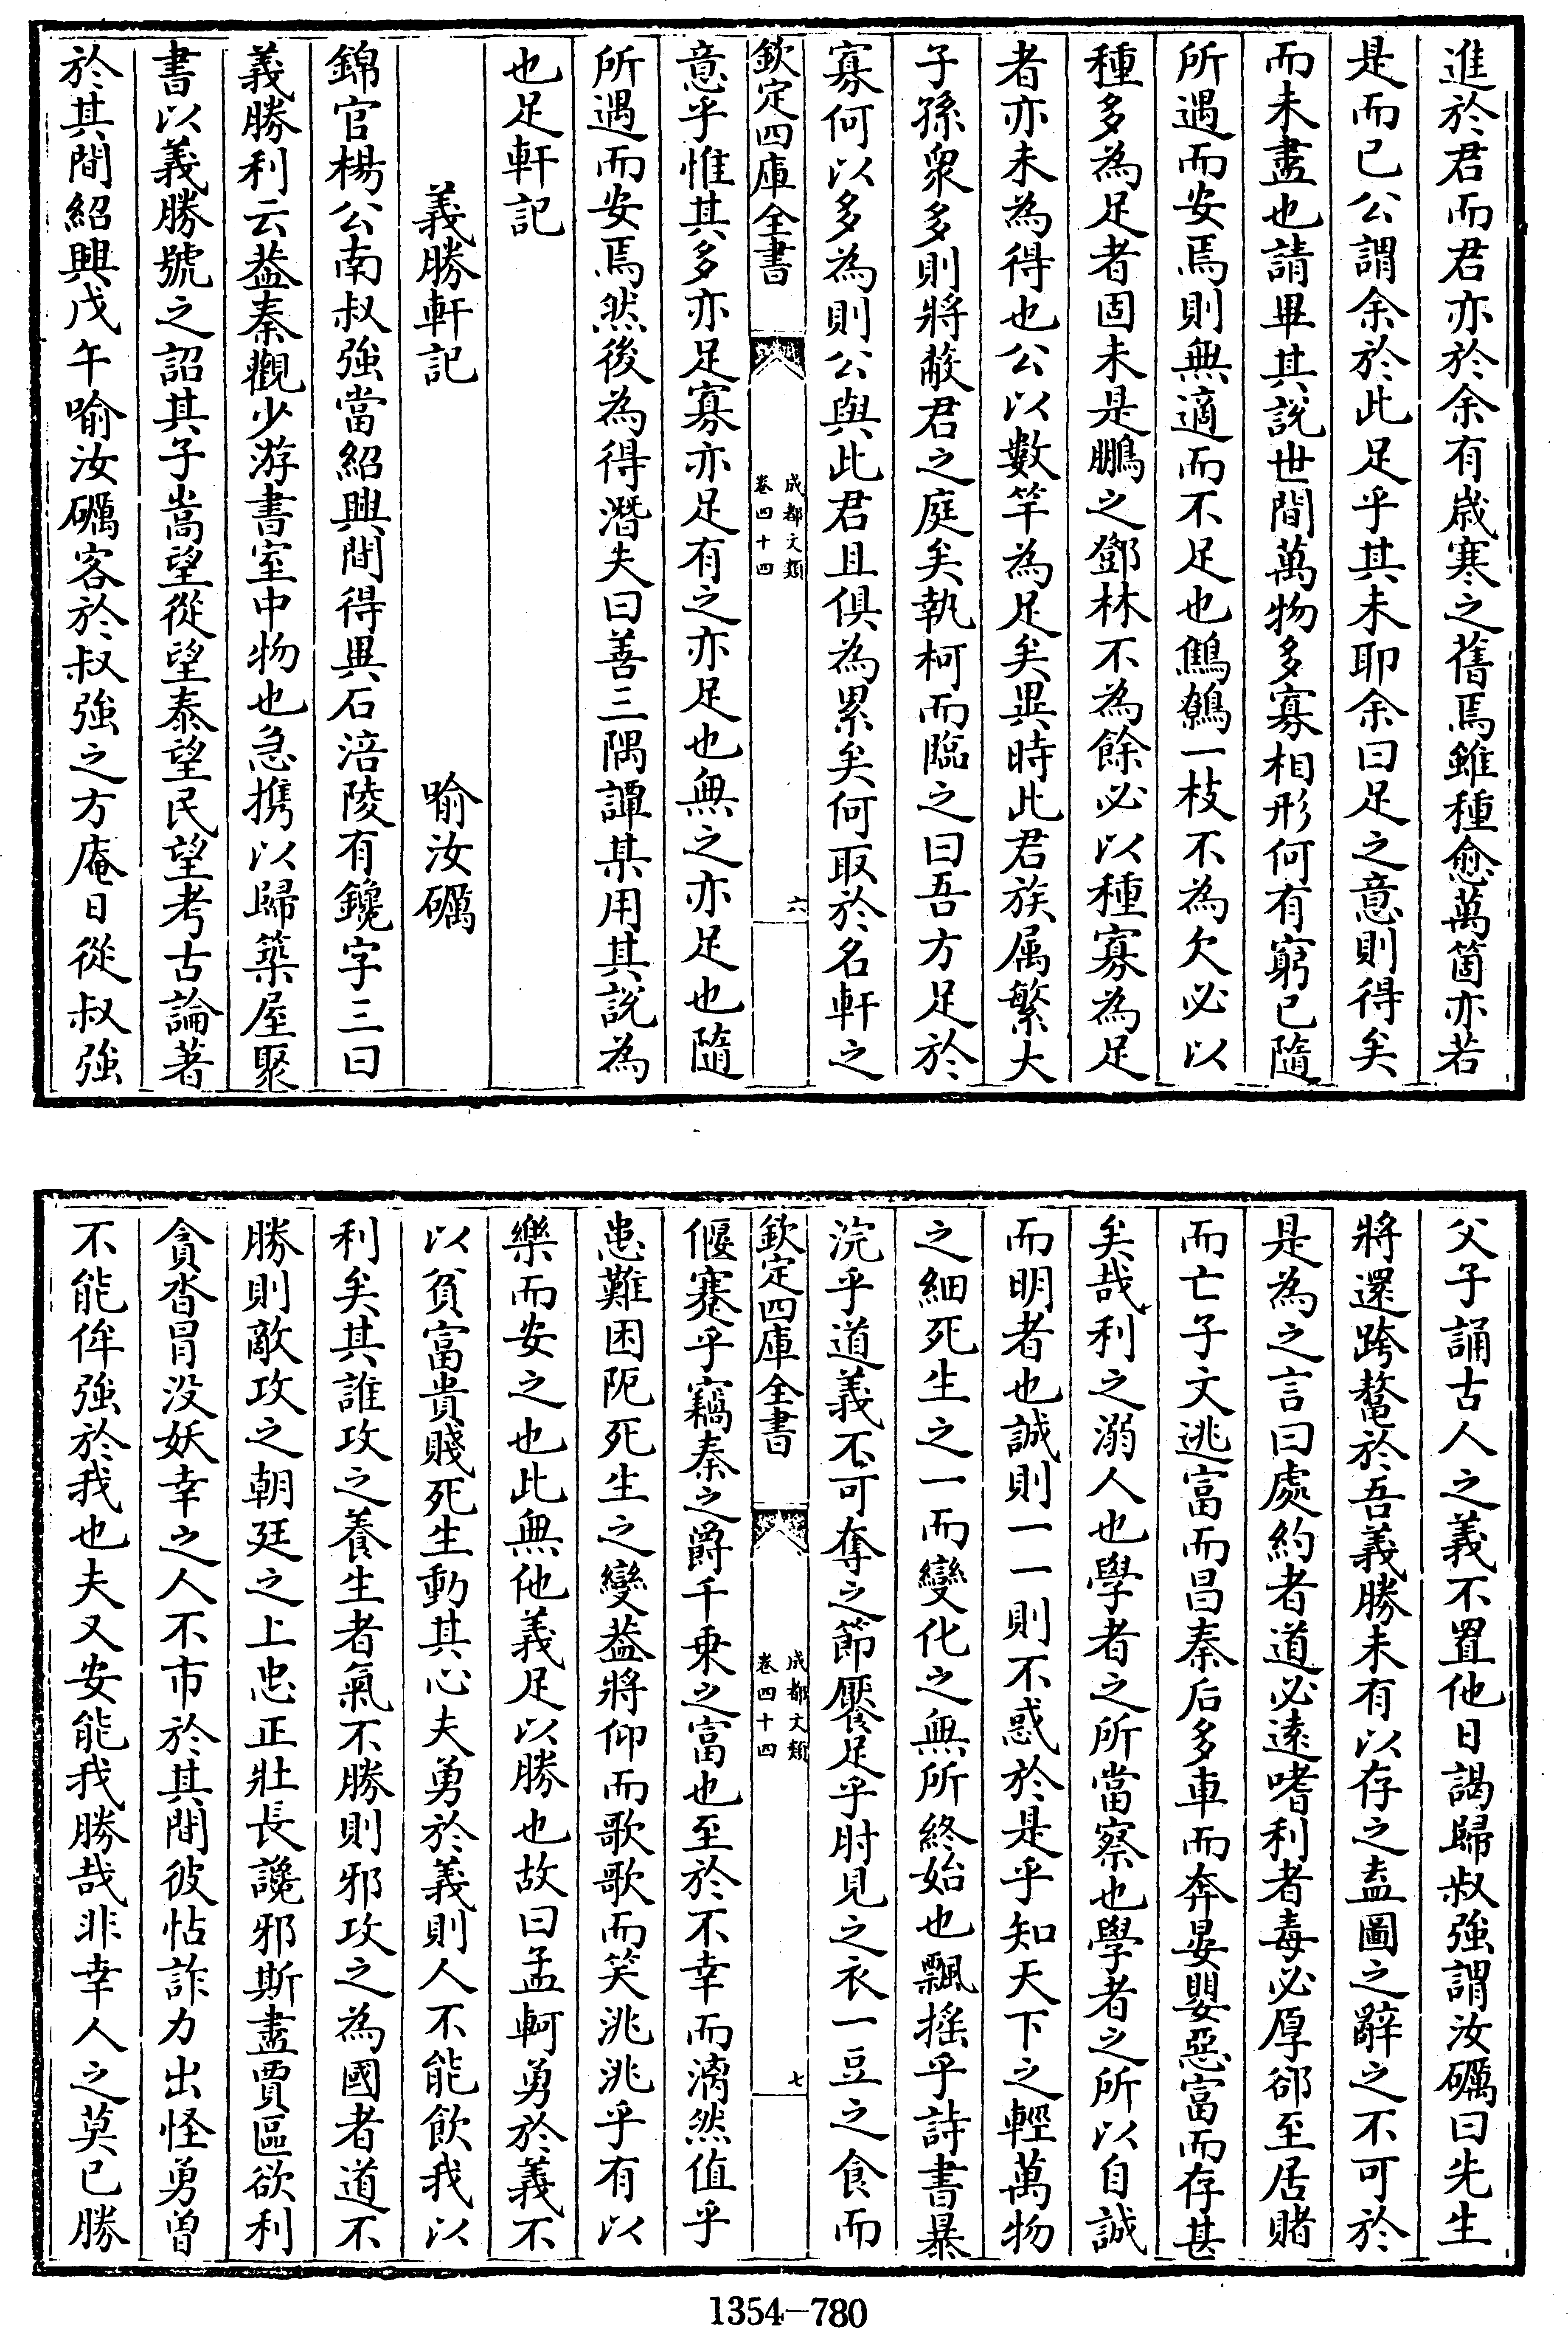 進於君而君亦於余有歲寒之舊焉雖種愈萬箇亦若
是而已公謂余於此足乎其未耶余曰足之意則得矣
而未盡也請畢其說世間萬物多寡相形何有窮已隨
所遇而安焉則無適而不足也鷦鷯一枝不為欠必以
種多為足者固未是鵬之鄧林不為餘必以種寡為足
者亦未為得也公以數竿為足矣異時此君族属繁大
子孫衆多則將蔽君之庭矣執柯而臨之曰吾方足於
寡何以多為則公與此君且俱為累矣何取於名軒之
欽定四庫全書
成都文類
卷四十四
六
意乎惟其多亦足寡亦足有之亦足也無之亦足也隨
所遇而安焉然後為得潛夫曰善三隅譚某用其說為
也足軒記
義勝軒記 喻汝礪
錦官楊公南叔強當紹興間得異石涪陵有鑱字三曰
義勝利云葢秦觀少游書室中物也急携以歸築屋聚
書以義勝號之詔其子嵩望從望泰望民望考古論著
於其間紹興戊午喻汝礪客於叔強之方庵日從叔強
父子誦古人之義不置他日謁歸叔強謂汝礪曰先生
將還跨鼇於吾義勝未有以存之盍圖之辭之不可於
是為之言曰處約者道必遠嗜利者毒必厚郤至居賭
而亡子文逃富而昌秦后多車而奔晏嬰惡富而存甚
矣哉利之溺人也學者之所當察也學者之所以自誠
而明者也誠則一一則不惑於是乎知天下之輕萬物
之細死生之一而變化之無所終始也飄搖乎詩書暴
浣乎道義不可奪之節饜足乎肘見之衣一豆之食而
欽定四庫全書
成都文類
卷四十四
七
偃蹇乎竊秦之爵千乗之富也至於不幸而漓然值乎
患難困阨死生之變葢將仰而歌歌而笑洮洮乎有以
樂而安之也此無他義足以勝也故曰孟軻勇於義不
以貧富貴賤死生動其心夫勇於義則人不能飲我以
利矣其誰攻之養生者氣不勝則邪攻之為國者道不
勝則敵攻之朝廷之上忠正壯長讒邪斯盡賈區欲利
貪沓冒没妖幸之人不市於其間彼怙詐力出怪勇曽
不能侔強於我也夫又安能我勝哉非幸人之莫已勝
1354—780